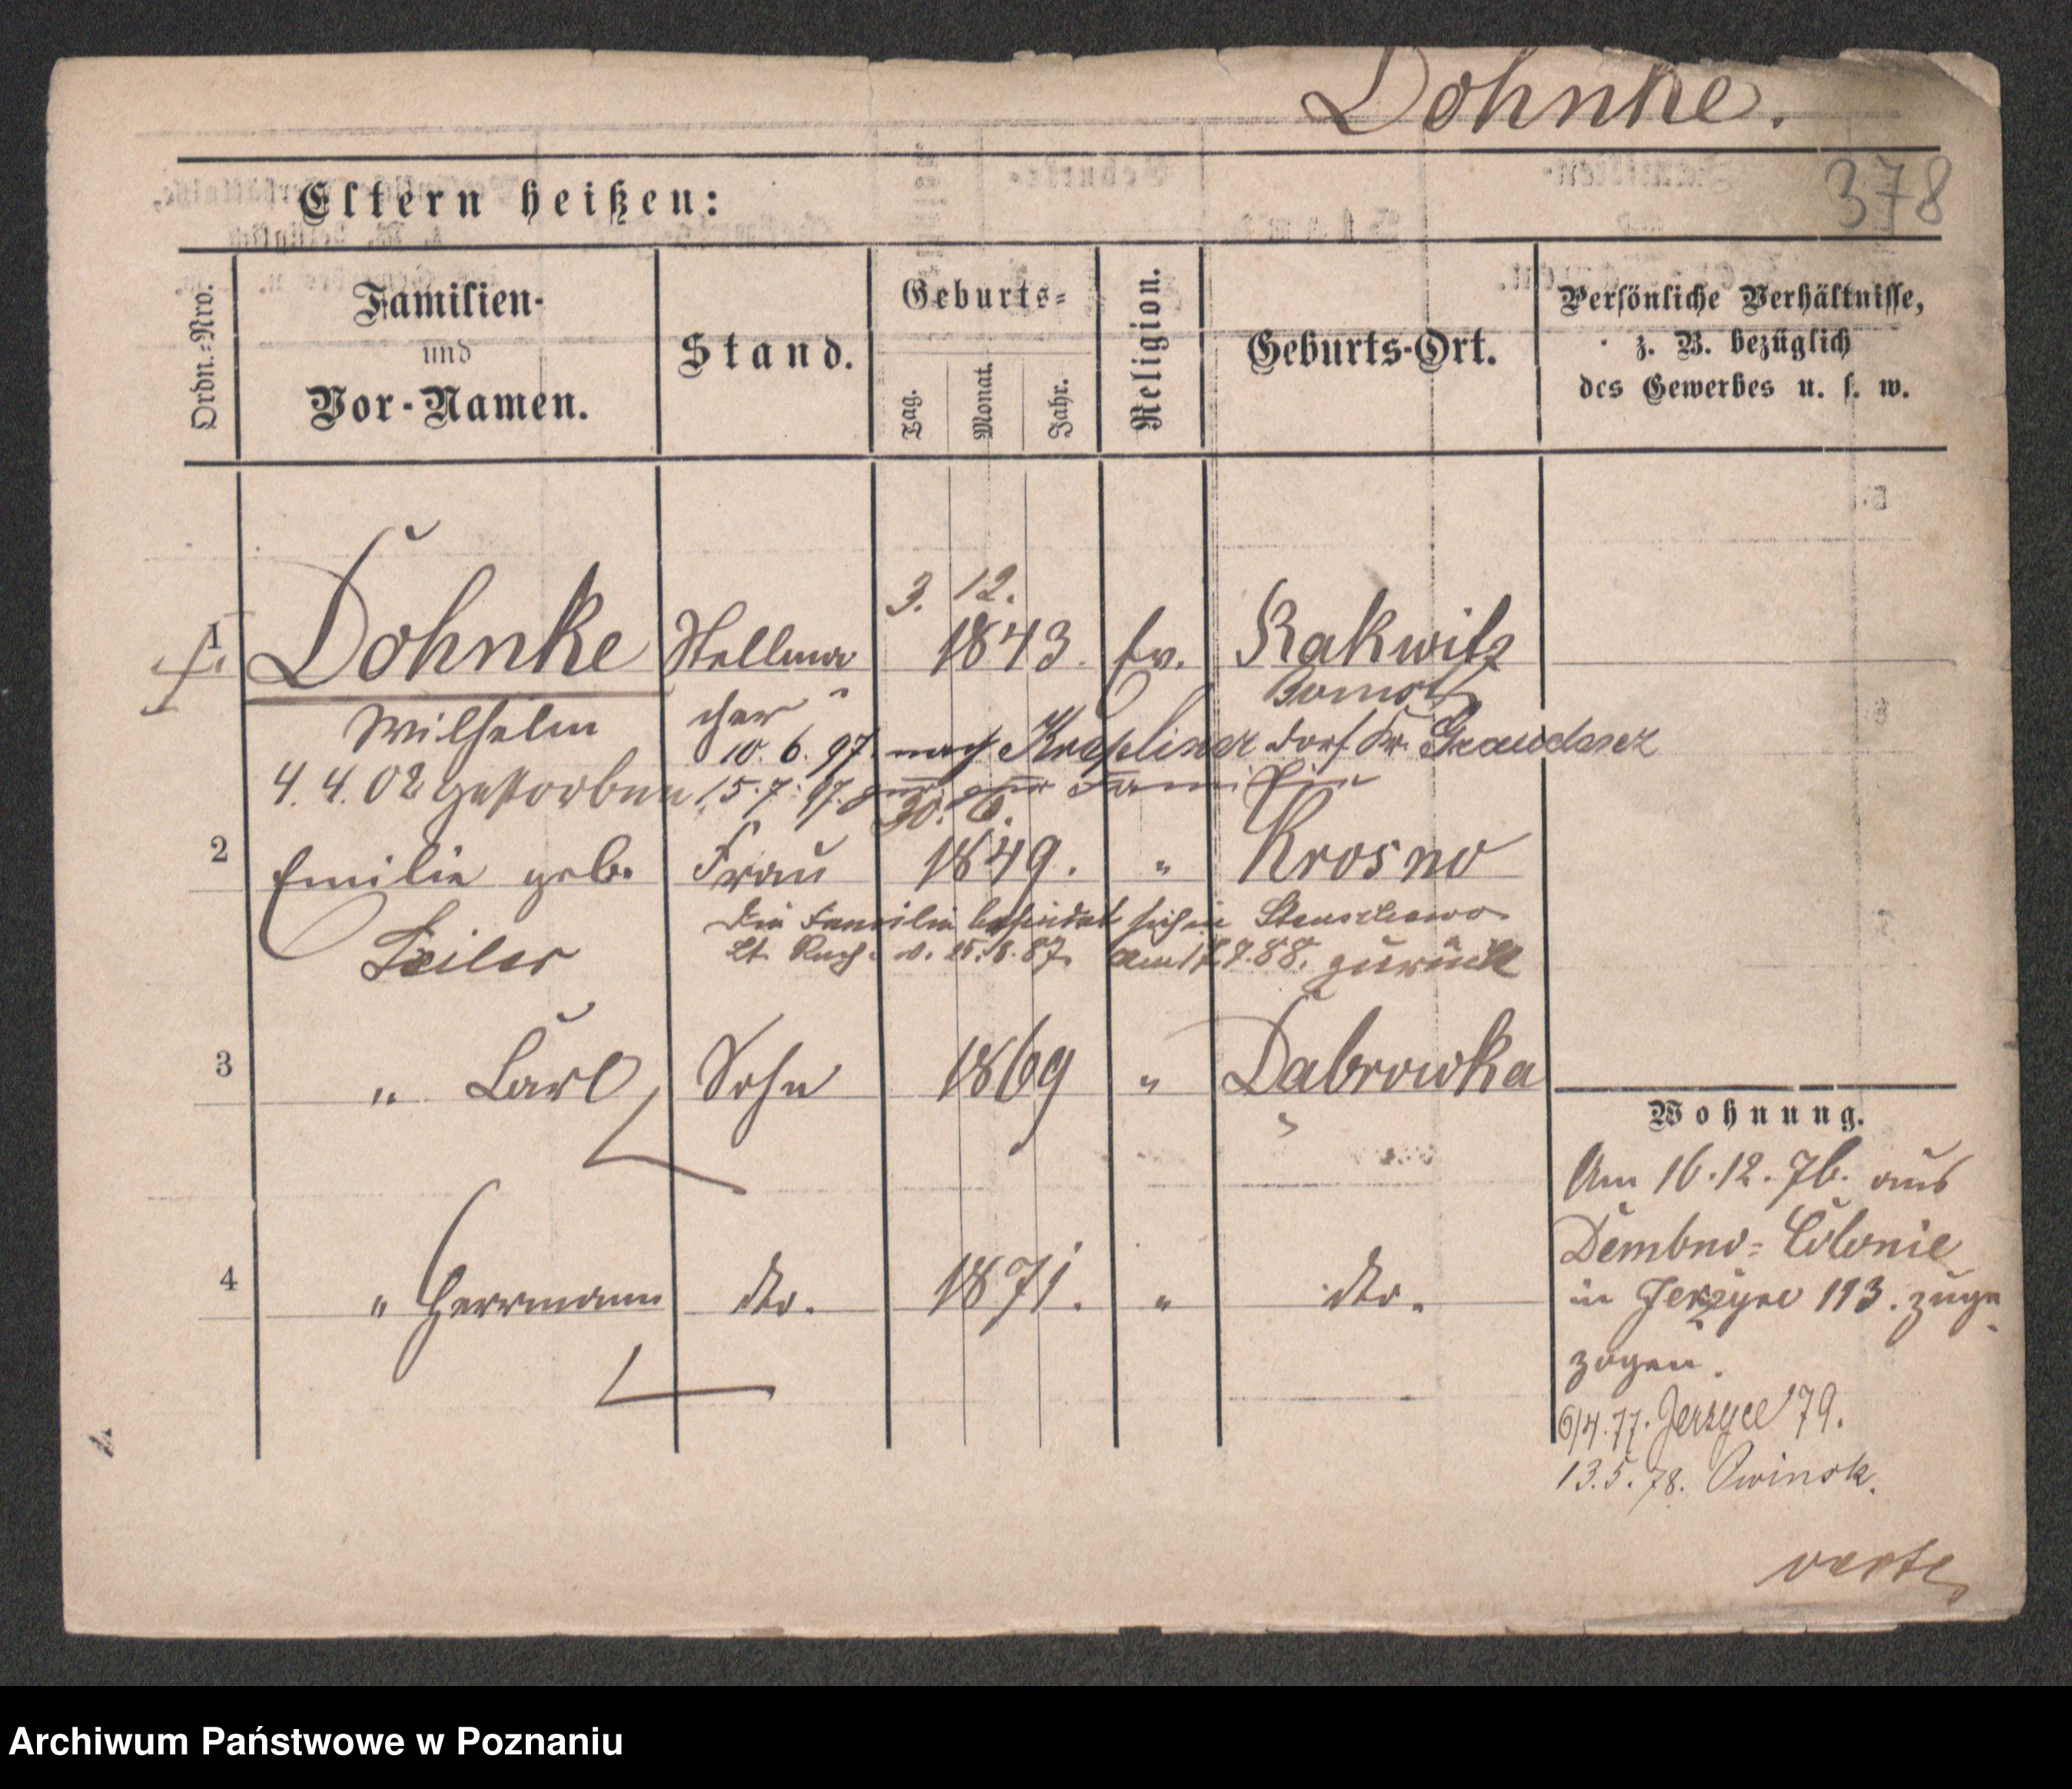 Dohnke.
378
Eltern heißen:
Ordn.-Nro.
Familien-
und
Vor-Namen.
Stand.
Geburts-
Tag.
Monat.
Jahr.
Religion.
Geburts-Ort.
Persönliche Verhältnisse,
z. B. bezüglich
des Gewerbes u. s. w.
3. 12.
1 Dohnke Stellma 1843. Ev. Rakwitz
Bomst
Wilhelm cher
10. 6. 97. nach dorf Kr. Graudenz
4. 4. 02 gestorben 15. 7. 97. zur Familie
30. 6.
2 Emilie geb. Frau 1849. " Krosno
Die Familie befindet sich in Stenschewo
Zeiler lt. v. 15. 8. 87. am 88. zurück
3 " Carl Sohn 1869 " Dabrowka
Wohnung.
Am 16. 12. 76. aus
Dembno-Colonie
4 " Herrmann dto. 1871. " dto.
in Jerzyce 113. zuge
zogen.
6/4. 77. Jerzyce 79.
13. 5. 78. Owinsk.
verte
Archiwum Państwowe w Poznaniu